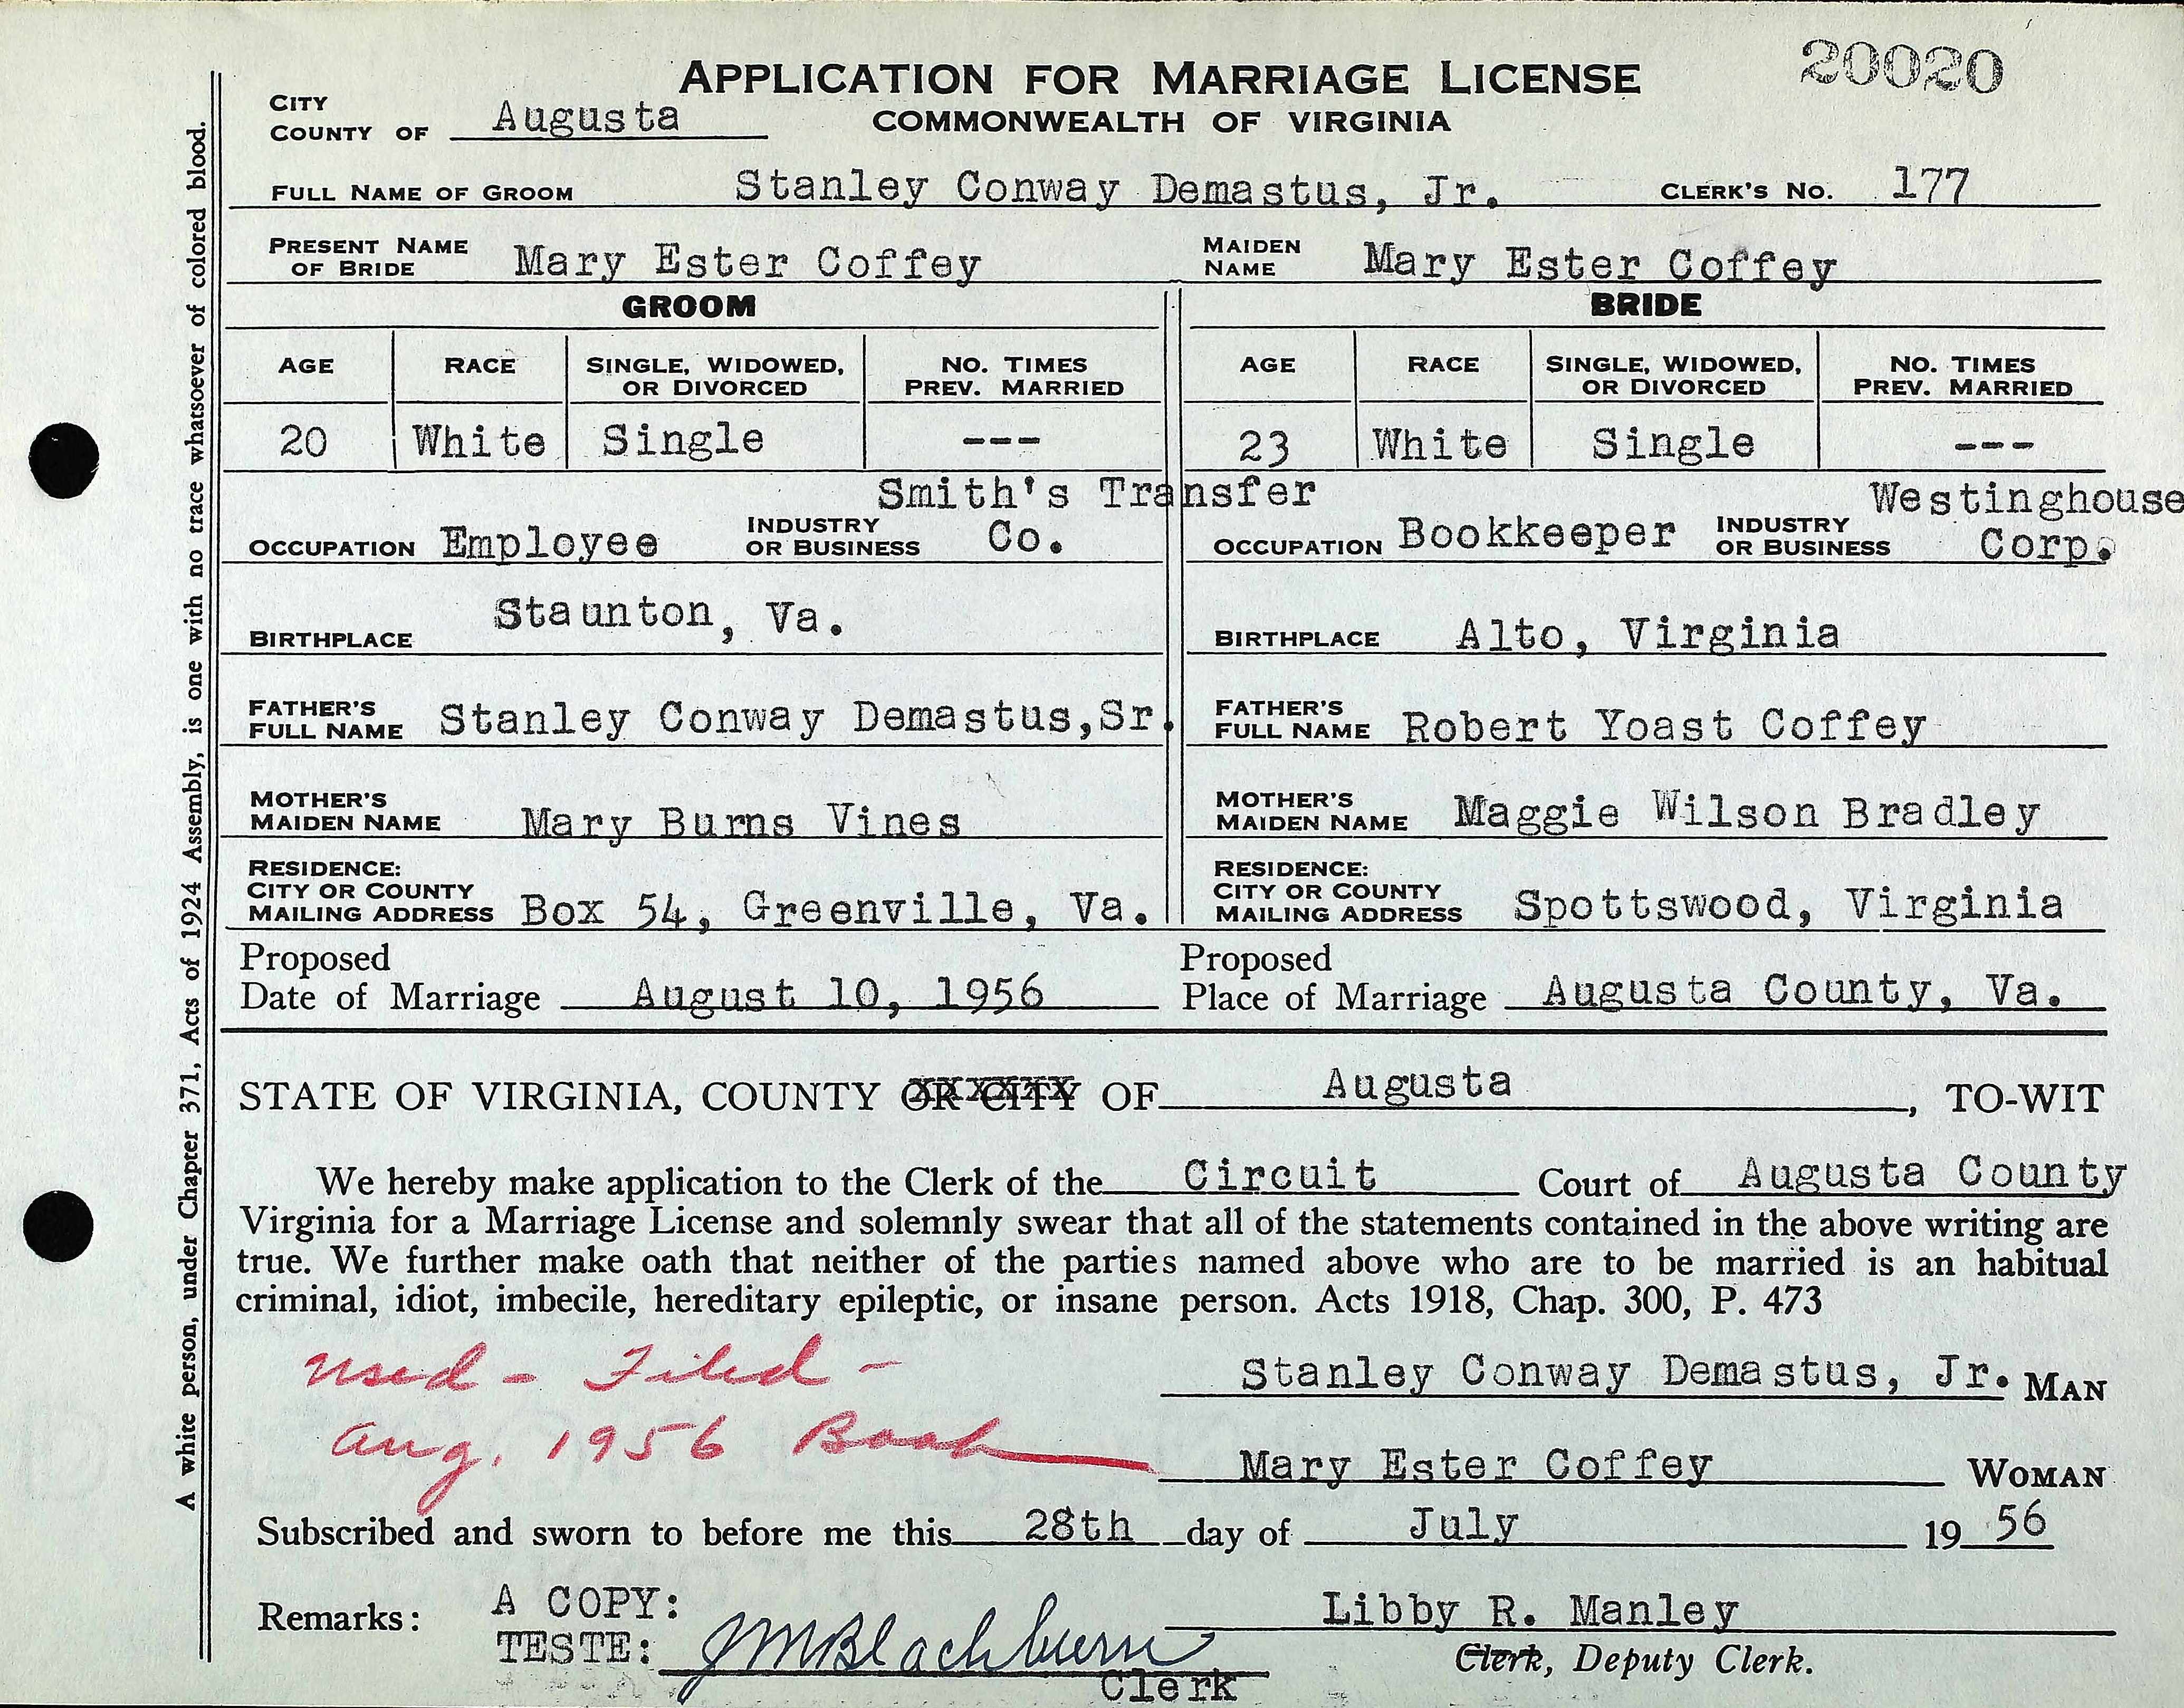 20020
APPLICATION FOR MARRIAGE LICENSE
COMMONWEALTH OF VIRGINIA
CITY
COUNTY OF Augusta
FULL NAME OF GROOM Stanley Conway Demastus, Jr. CLERK'S NO. 177
PRESENT NAME OF BRIDE Mary Ester Coffey MAIDEN NAME Mary Ester Coffey
GROOM BRIDE
AGE RACE SINGLE, WIDOWED, OR DIVORCED NO. TIMES PREV. MARRIED AGE RACE SINGLE, WIDOWED, OR DIVORCED NO. TIMES PREV. MARRIED
20 White Single --- 23 White Single ---
OCCUPATION Employee INDUSTRY OR BUSINESS Smith's Transfer Co. OCCUPATION Bookkeeper INDUSTRY OR BUSINESS Westinghouse Corp.
BIRTHPLACE Staunton, Va. BIRTHPLACE Alto, Virginia
FATHER'S FULL NAME Stanley Conway Demastus,Sr. FATHER'S FULL NAME Robert Yoast Coffey
MOTHER'S MAIDEN NAME Mary Burns Vines MOTHER'S MAIDEN NAME Maggie Wilson Bradley
RESIDENCE: CITY OR COUNTY MAILING ADDRESS Box 54, Greenville, Va. RESIDENCE: CITY OR COUNTY MAILING ADDRESS Spottswood, Virginia
Proposed Date of Marriage August 10, 1956 Proposed Place of Marriage Augusta County, Va.
STATE OF VIRGINIA, COUNTY OR CITY OF Augusta, TO-WIT
We hereby make application to the Clerk of the Circuit Court of Augusta County
Virginia for a Marriage License and solemnly swear that all of the statements contained in the above writing are
true. We further make oath that neither of the parties named above who are to be married is an habitual
criminal, idiot, imbecile, hereditary epileptic, or insane person. Acts 1918, Chap. 300, P. 473
Used - Filed -
Aug. 1956 Book
Stanley Conway Demastus, Jr. MAN
Mary Ester Coffey WOMAN
Subscribed and sworn to before me this 28th day of July 19 56
Remarks: A COPY:
TESTE: JMBlackburn
Clerk
Libby R. Manley
Clerk, Deputy Clerk.
A white person, under Chapter 371, Acts of 1924 Assembly, is one with no trace whatsoever of colored blood.